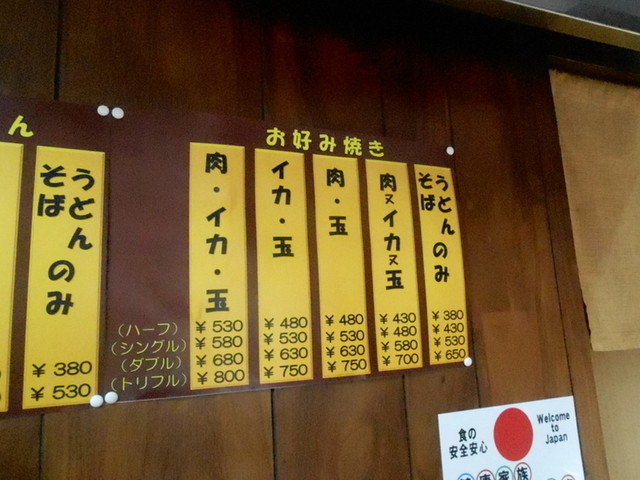 ん
うどんのみ
そば
¥380
¥530
お好み焼き
(ハーフ)
(シングル)
(ダブル)
(トリプル)
肉・イカ・玉
¥530
¥580
¥680
¥800
イカ・玉
¥480
¥530
¥630
¥750
肉・玉
¥480
¥530
¥630
¥750
肉又イカ又玉
¥430
¥480
¥580
¥700
うどんのみ
そば
¥380
¥430
¥530
¥650
食の
安全安心
Welcome
to
Japan
健康家族